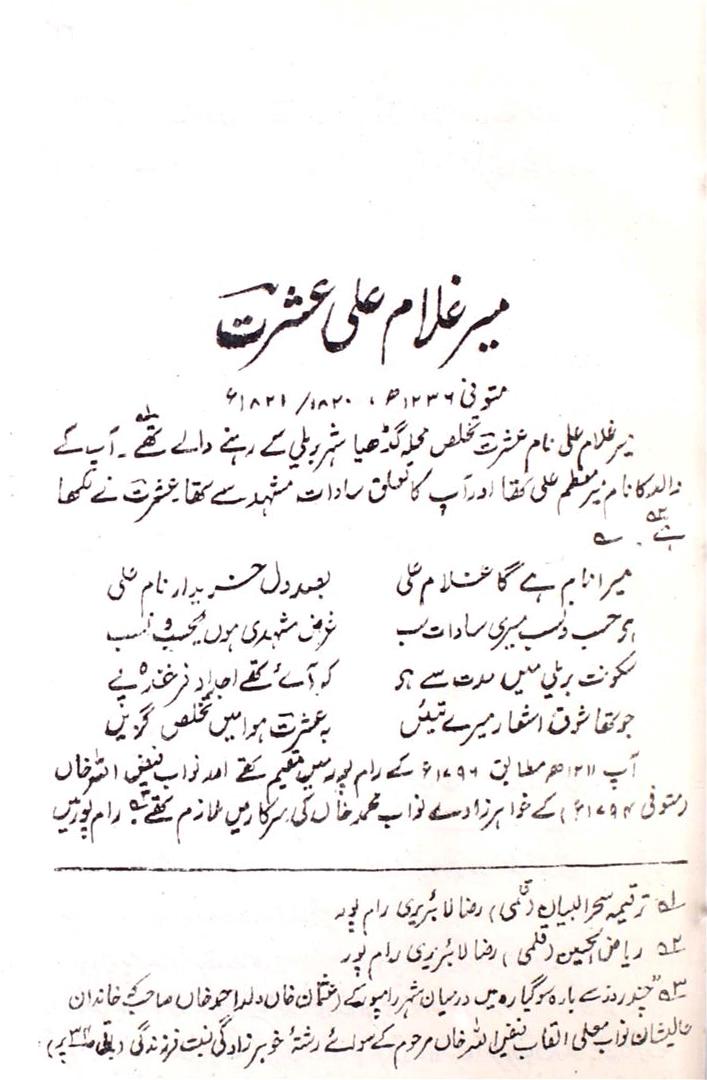 میر غلام علی عشرت
متوفی ۱۲۳۶ھ، ۱۸۲۰/ ۱۸۲۱ء
میر غلام علی نام عشرت تخلص محلہ گڈھیا شہر بریلی کے رہنے والے تھے۔ ؎۱ آپ کے
والد کا نام میر معظم علی تھا اور آپ کا تعلق سادات مشہد سے تھا عشرت نے لکھا
ہے۔ ؎۲
میرا نام ہے گا غلام علی بصد دل خریدار نام علی
ہر حسب و نسب میری سادات سب غرض مشہدی ہوں بحسب و نسب
سکونت بریلی میں مدت سے ہر کہ آئے تھے اجداد فرغندہ پے
جو تھا شوق اشعار میرے تئیں بہ عشرت ہوا میں تخلص گزیں
آپ ۱۲۱۱ھ مطابق ۱۷۹۶ء کے رام پور میں مقیم تھے اور نواب فیض اللہ خاں
(متوفی ۱۷۹۴ء) کے خواہر زادے نواب محمد خاں کی سرکار میں ملازم تھے ؎۳ رام پور میں
؎۱ ترقیمہ سحر البیان (قلمی) رضا لائبریری رام پور
؎۲ ریاض الحسین (قلمی) رضا لائبریری رام پور
؎۳ "چند روز سے بارہ سو گیارہ میں درمیان شہر رامپور کے (عثمان خاں ولد احمد خاں صاحب کے خاندان
عالیشان نواب معلی القاب فیض اللہ خاں مرحوم کے سوائے رشتۂ خویر زادگی نسبت فرزندگی (باقی ص۳۲ پر)